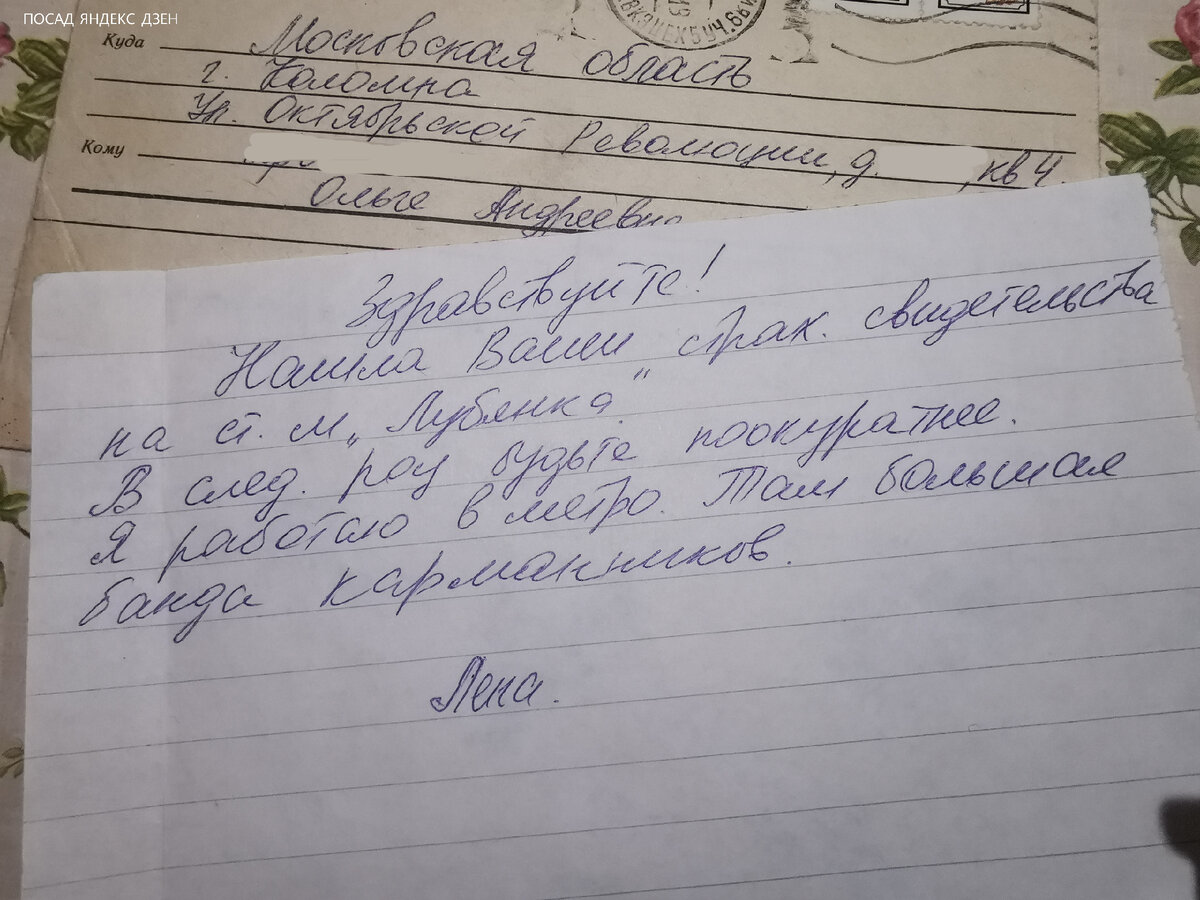 ПОСАД ЯНДЕКС ДЗЕН
Куда Московская область
г. Коломна
Ул. Октябрьской Революции, д. , кв 4
Кому
Ольге Андреевне
Здравствуйте!
Нашла Ваши страх. свидетельства
на ст. м „Лубянка"
В след. раз будьте поокуратнее.
Я работаю в метро. Там большая
банда карманников.
Лена.